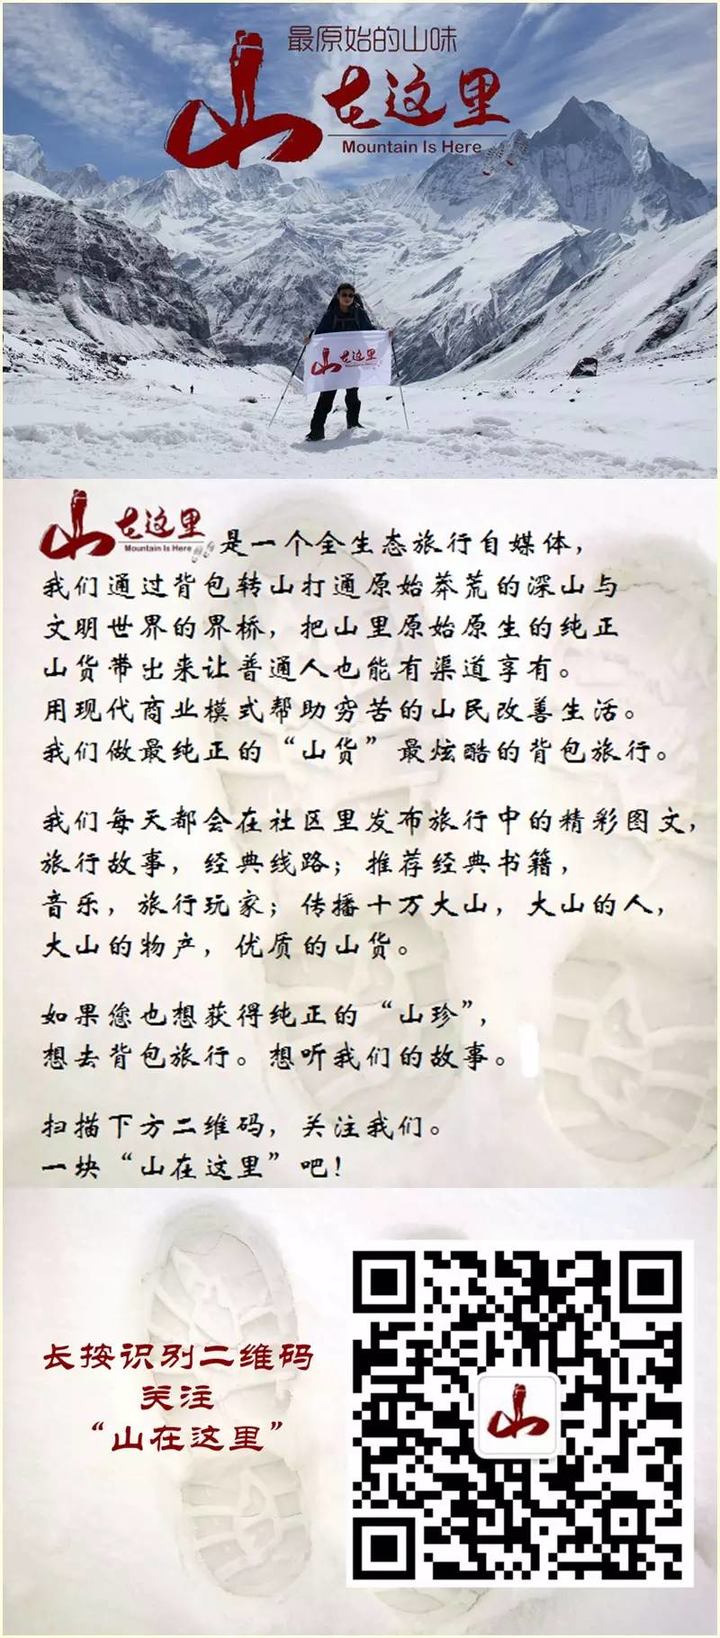 最原始的山味
山在这里
Mountain Is Here
山在这里
山在这里
Mountain Is Here
是一个全生态旅行自媒体，
我们通过背包转山打通原始莽荒的深山与
文明世界的界桥，把山里原始原生的纯正
山货带出来让普通人也能有渠道享有。
用现代商业模式帮助穷苦的山民改善生活。
我们做最纯正的“山货”最炫酷的背包旅行。
我们每天都会在社区里发布旅行中的精彩图文，
旅行故事，经典线路；推荐经典书籍，
音乐，旅行玩家；传播十万大山，大山的人，
大山的物产，优质的山货。
如果您也想获得纯正的“山珍”，
想去背包旅行。想听我们的故事。
扫描下方二维码，关注我们。
一块“山在这里”吧！
长按识别二维码
关注
“山在这里”
山